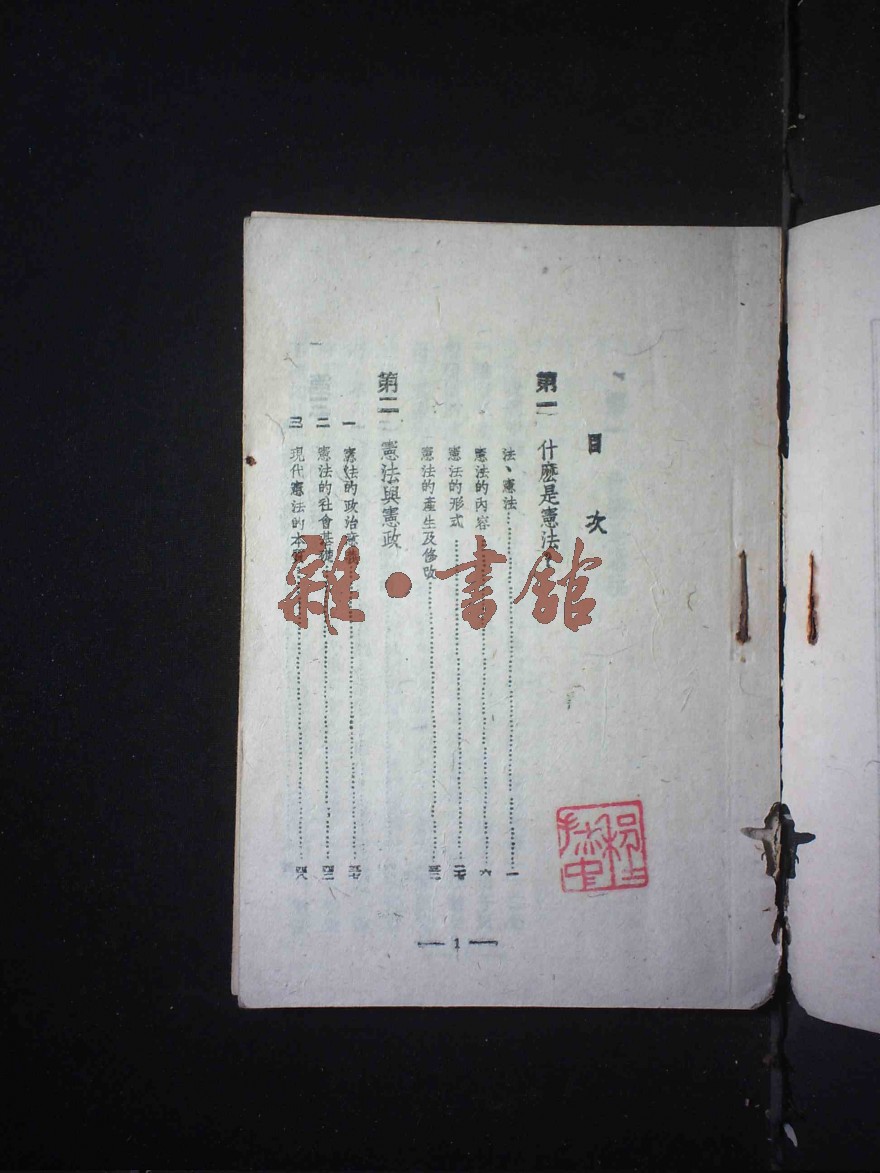 目次
第一 什麽是憲法?
法、憲法……一
憲法的內容……六
憲法的形式……
憲法的產生及修改……
第二 憲法與憲政
一 憲法的政治意義……
二 憲法的社會基礎……
三 現代憲法的本質……
— 1 —
雜·書館